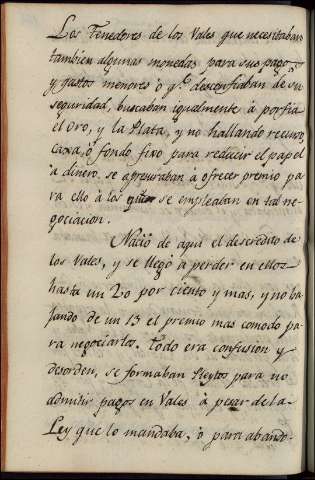 Los Tenedores de los Vales que necesitaban
tambien algunas monedas para sus pagos
y gastos menores ò q.e desconfiaban de su
seguridad, buscaban igualmente à porfia
el Oro, y la Plata, y no hallando recurso,
Caxa, ò fondo fixo para reducir el papel
à dinero, se apresuraban à ofrecer premio pa-
ra ello à los que se empleaban en tal ne-
gociacion.
Naciò de aqui el descredito de
los Vales, y se llegò à perder en ellos
hasta un 20 por ciento y mas, y no ba-
jando de un 13 el premio mas comodo pa-
ra negociarlos. Todo era confusion y
desorden, se formaban Pleytos para no
admitir pagos en Vales à pesar de la
Ley que lo mandaba, ò para abando-